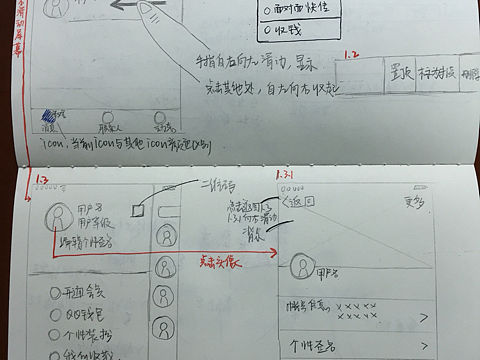 面对面快传
收钱
手指自右向左滑动,显示
点击其他处,自左向右收起
1.2
置顶
标为未读
删除
消息
联系人
动态
icon,当前icon与其他icon颜色区别
右滑动屏幕
1.3
用户名
用户等级
编辑个性签名
二维码
点击头像
开通会员
QQ钱包
个性装扮
我的收藏
1.3.1
点击返回1.3
1.3.1向右滑动
消失
<返回
更多
用户名
账号信息
xxxxx
xxxxx
>
个性签名
>